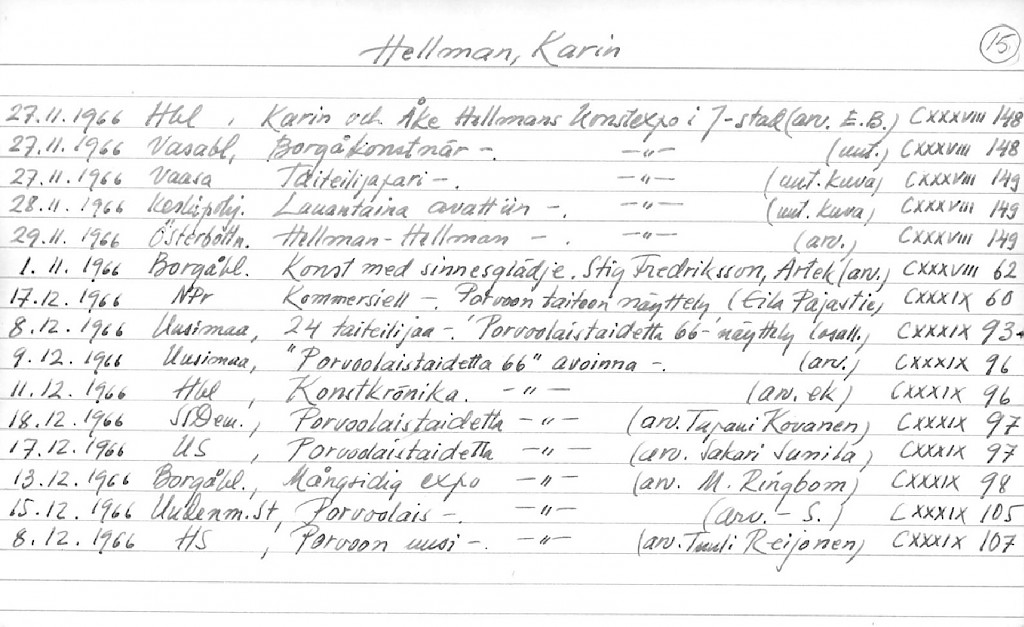 Hellman, Karin 15
27.11.1966 Hbl, Karin och Åke Hellmans konstexpo i J-stad (arv. E.B.) CXXXVIII 148
27.11.1966 Vasabl, Borgåkonstnär -. -"- (uut.) CXXXVIII 148
27.11.1966 Vaasa Taiteilijapari -. -"- (uut. kuva) CXXXVIII 149
28.11.1966 Keskipohj. Lauantaina avattiin -. -"- (uut. kuva) CXXXVIII 149
29.11.1966 Österbottn. Hellman-Hellman -. -"- (arv.) CXXXVIII 149
1.11.1966 Borgåbl. Konst med sinnesglädje. Stig Fredriksson, Artek (arv.) CXXXVIII 62
17.12.1966 NPr Kommersiell -. Porvoon taitoon näyttely (Eila Pajastie) CXXXIX 60
8.12.1966 Uusimaa, 24 taiteilijaa -. 'Porvoolaistaidetta 66-' näyttely (osall.) CXXXIX 93
9.12.1966 Uusimaa, "Porvoolaistaidetta 66" avoinna -. (arv.) CXXXIX 96
11.12.1966 Hbl, Konstkrönika. -"- (arv. ek) CXXXIX 96
18.12.1966 S.Dem., Porvoolaistaidetta -"- (arv. Tapani Kovanen) CXXXIX 97
17.12.1966 US, Porvoolaistaidetta -"- (arv. Sakari Sunila) CXXXIX 97
13.12.1966 Borgåbl., Mångsidig expo -"- (arv. M. Ringbom) CXXXIX 98
15.12.1966 Uudenm.St, Porvoolais -. -"- (arv. - S.) CXXXIX 105
8.12.1966 HS, Porvoon uusi -. -"- (arv. Tuuli Reijonen) CXXXIX 107